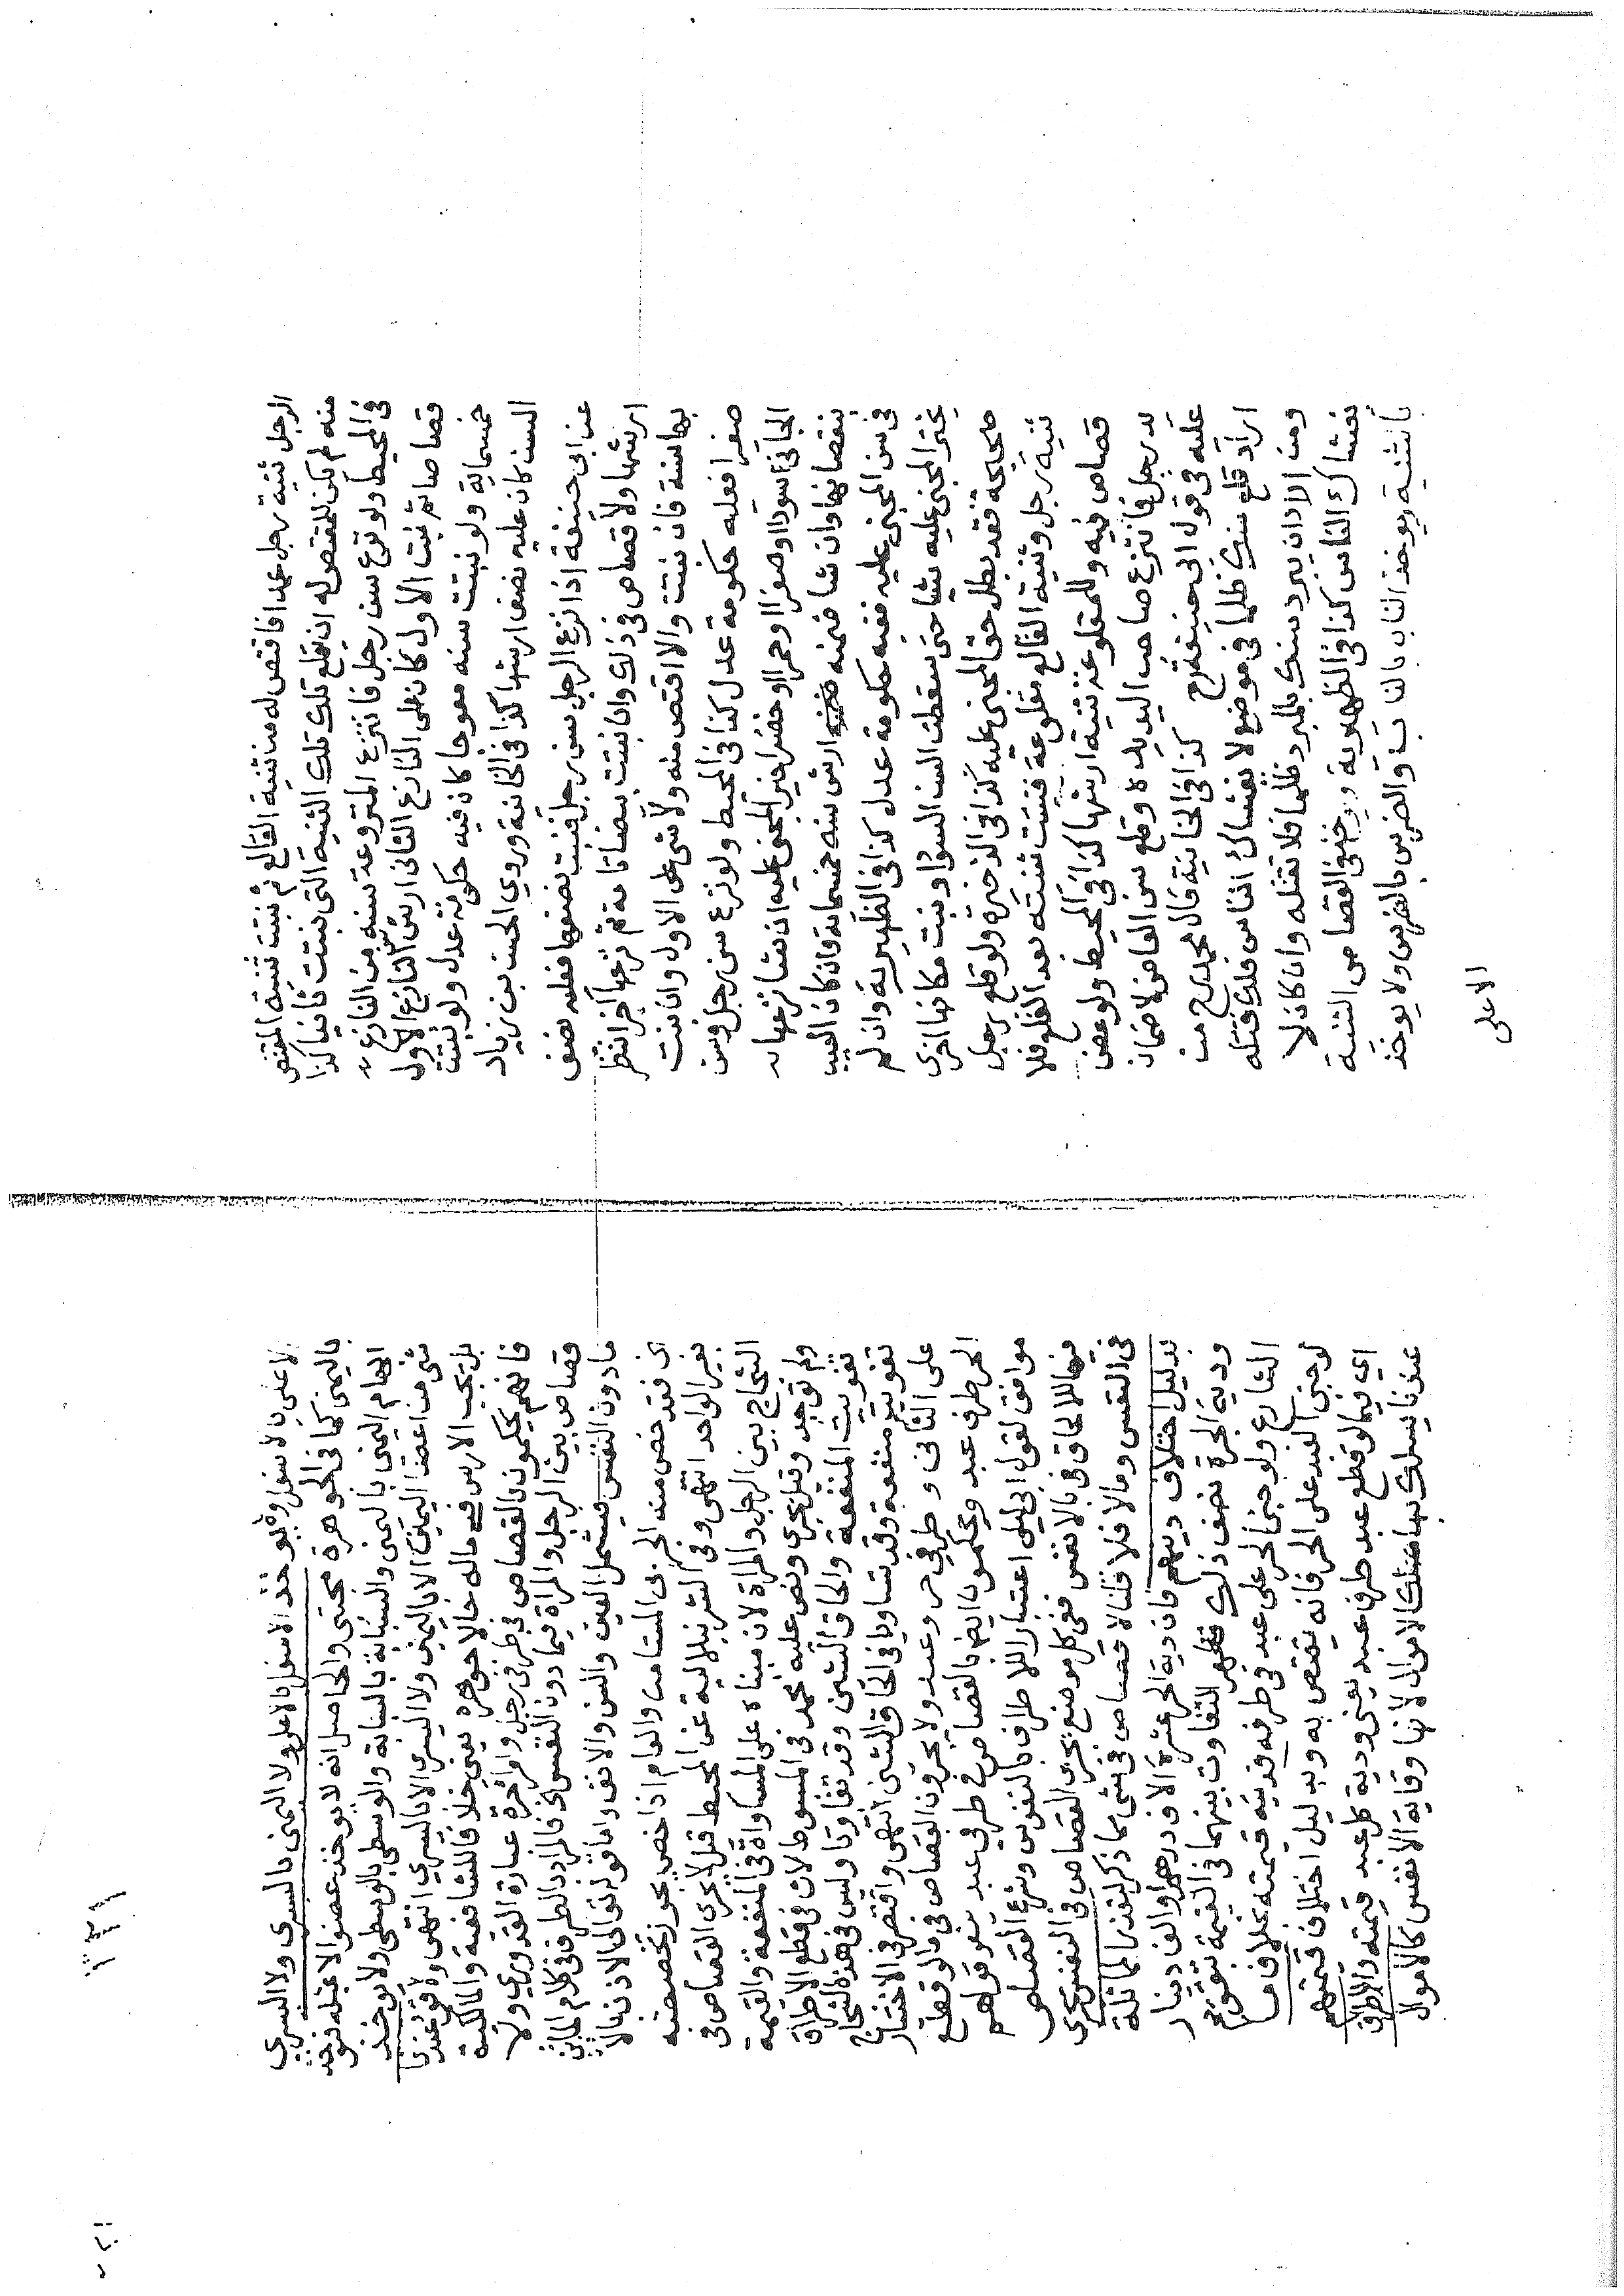 الرجل ثنية رجل عمدا فاقتص له من ثنية القالع ثم نبتت ثنية المقتص
منه لم يكن للمقتص له ان يقلع تلك الثنية التي نبتت ثانيا كذا
في المحيط ولو نزع سن رجل فانتزع المنزوعة سنه من النازع
قصاصا ثم نبت الاول كان على النازع الثاني ارش سن النازع الاول
خمسماية ولو نبتت سنه معوجا كان فيه حكومة عدل ولو نبتت
السن كان عليه نصف ارشها كذا في الخانية وروي الحسن بن زياد
عن ابي حنيفة اذا نزع الرجل سن رجل فنبت نصفها فعليه نصف
ارشها ولا قصاص في ذلك وان نبتت بيضا تامة ثم نزعها اخر انتظر
بها سنة فان نبتت والا اقتص منه ولا شي على الاول وان نبتت
صفرا فعليه حكومة عدل كذا في المحيط ولو نزع سن رجل وسن
الجاني سودا او صفرا او حمرا او خضرا خير المجني عليه ان شا نزعها
بنقصانها وان شا ضمنه ارش سنه خمسماية وان كان العيب
في سن المجني عليه ففيه حكومة عدل كذا في الظهيرية وان لم
يختر المجني عليه شيا حتى سقطت السن السودا ونبت مكانها اخرى
صحيحة فقد بطل حق المجني عليه كذا في الذخيرة ولو قلع رجل
ثنية رجل وثنية القالع مقلوعة فنبتت ثنيته بعد القلع فلا
قصاص فيه وللمقلوعة ثنيته ارشها كذا في المحيط ولو عض
يد رجل فانتزع صاحب اليد يده وقلع سن العاض لا ضمان
عليه في قول ابي حنيفة كذا في الخانية قال محمد رح من
اراد قلع سنك ظلما في موضع لا يغيثك الناس فلك قتله
ومن اراد ان يبرد سنك بالمبرد ظلما فلا تقتله وان كان لا
يغيثك الناس كذا في الظهيرية ويؤخذ في القصاص الثنية
بالثنية ويوخذ الناب بالناب والضرس بالضرس ولا يوخذ
الاعلى
الاعلى بالاسفل ولا يوخذ الاسفل بالاعلى ولا اليمنى باليسرى ولا اليسرى
باليمنى كما في الجوهرة مجتبى والحاصل انه لا يوخذ عضو الا بمثله فتوخذ
ابهام اليمنى باليمنى والسبابة بالسبابة والوسطى بالوسطى ولا يوخذ
شي من اعضا اليمين الا باليمين ولا اليسرى الا باليسرى انتهى ولا قود عندنا
بل يجب الارش في ماله حالا جوهرة يعني خلافا للشافعية والمالكية
فانهم يحكمون بالقصاص في طرفي رجل وامرأة عبارة القدوري ولا
قصاص بين الرجل والمراة فيما دون النفس اه فالمراد بالطرف في كلام الماتن
ما دون النفس فيشمل العين والسن والانف واما قوله تعالى الاذن بالا
ذن فقد خص منه الحربي المستامن والعام اذا خص يجوز تخصيصه
بخبر الواحد انتهى وفي الشرنبلالية عن المحيط قيل لا يجري القصاص في
الشجاج بين الرجل والمراة لان مبناه على المساواة في المنفعة والقيمة
ولم توجد وقيل يجري ونص عليه محمد في المبسوط لان في قطع الاطراف
تفويت المنفعة والحاق الشين وقد تفاوتا وليس في هذه الشجاج
تفويت منفعة وقد تساويا في الحاق الشين انتهى واقتصر في الاختيار
على الثاني وطرفي حر وعبد ولا يجرون القصاص في ما لو قطع
الحر طرف عبد ويحكمون ايضا بالقصاص في طرفي عبدين فقولهم
موافق لقول ابي ليلى اعتبارا للاطراف بالنفوس وشرع القصاص
فيها للالحاق بالانفس ففي كل موضع يجري القصاص في النفس يجري
في النفس وما لا فلا قلنا لا قصاص في شي مما ذكر لتعذر المماثلة
بدليل اختلاف ديتهم فان دية الحر عشرة الاف درهم او الف دينار
ودية الحرة نصف ذلك فظهر التفاوت بينهما في القيمة بتقويم
الشارع ولو جنى الحر على عبد في طرفه فديته قيمته بخلاف ما
لو جنى العبد على الحر فانه يقتص به وبدليل اختلاف قيمتهم
اي فيما لو قطع عبد طرف عبد يعني ودية كل عبد قيمته والاطراف
عندنا يسلك بها مسلك الاموال لانها وقاية الانفس كالاموال